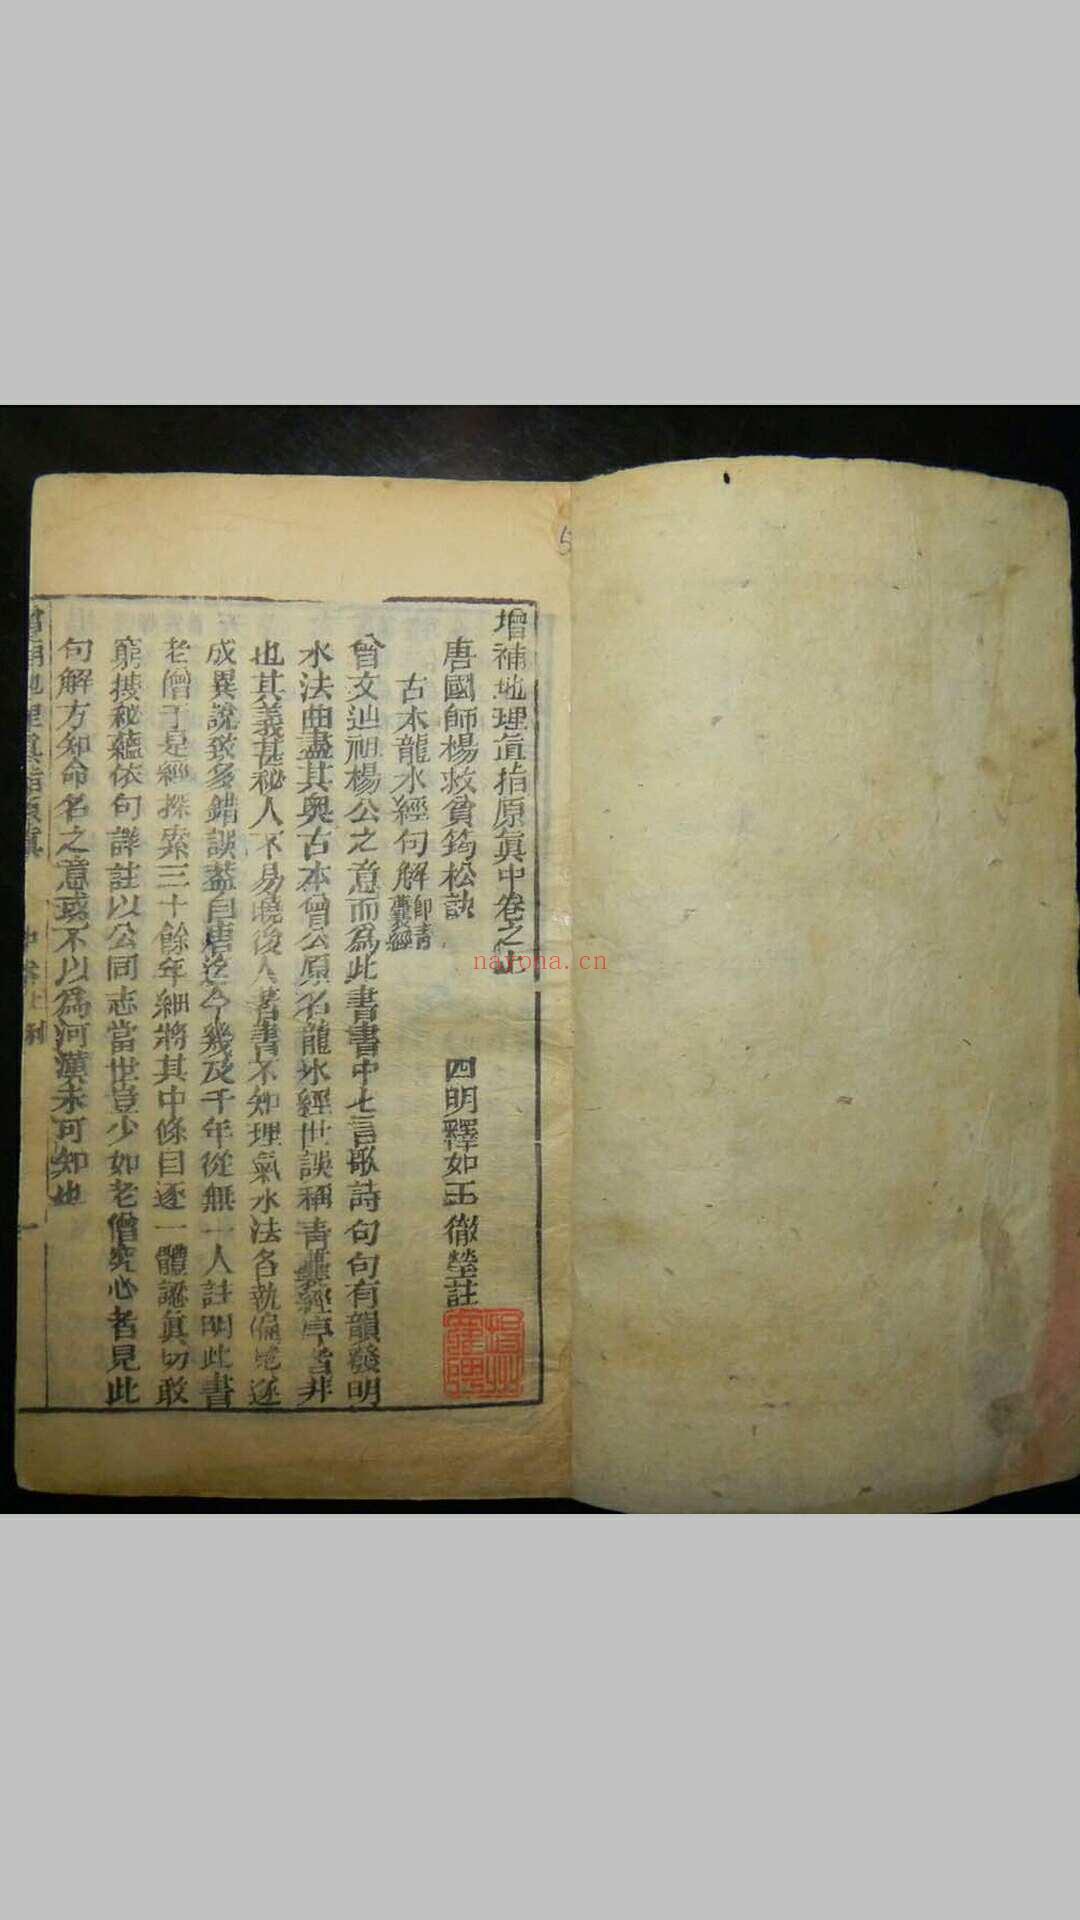 增補地理直指原真中卷之上
唐國師楊救貧筠松訣
四明釋如玉徹瑩註
古本龍水經句解即青囊經
曾文辿祖楊公之意而爲此書書中七言歌詩句句有韻發明
水法曲盡其奧古本曾公原名龍水經世誤稱青囊經序者非
也其義甚秘人不易曉後人著書不知理氣水法各執偏見遂
成異說致多錯誤葢自唐迄今幾及千年從無一人註明此書
老僧于是經探索三十餘年細將其中條目逐一體認眞切敢
窮搜秘蘊依句詳註以公同志當世豈少如老僧究心者見此
句解方知命名之意或不以爲河漢未可知也
地理直指原真
中卷上
一
5
nayona.cn